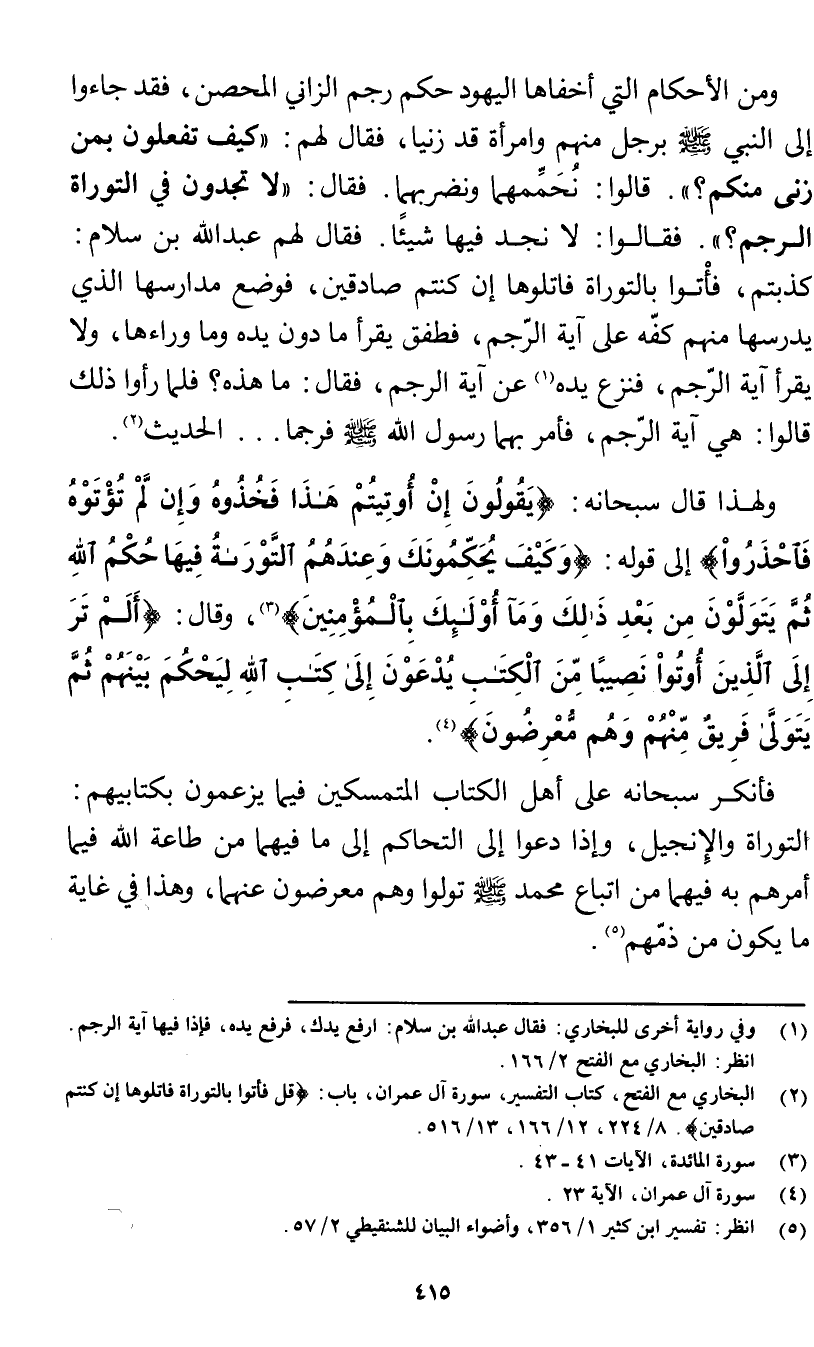 ومن الأحكام التي أخفاها اليهود حكم رجم الزاني المحصن، فقد جاءوا
إلى النبي ﷺ برجل منهم وامرأة قد زنيا، فقال لهم: «كيف تفعلون بمن
زنى منكم؟». قالوا: نُحَمِّمهما ونضربهما. فقال: «لا تجدون في التوراة
الرجم؟». فقالوا: لا نجد فيها شيئًا. فقال لهم عبدالله بن سلام:
كذبتم، فأْتوا بالتوراة فاتلوها إن كنتم صادقين، فوضع مدارسها الذي
يدرسها منهم كفّه على آية الرّجم، فطفق يقرأ ما دون يده وما وراءها، ولا
يقرأ آية الرّجم، فنزع يده(١) عن آية الرجم، فقال: ما هذه؟ فلما رأوا ذلك
قالوا: هي آية الرّجم، فأمر بهما رسول الله ﷺ فرجما... الحديث(٢).
ولهذا قال سبحانه: ﴿يَقُولُونَ إِنْ أُوتِيتُمْ هَٰذَا فَخُذُوهُ وَإِن لَّمْ تُؤْتَوْهُ
فَٱحْذَرُواْ﴾ إلى قوله: ﴿وَكَيْفَ يُحَكِّمُونَكَ وَعِندَهُمُ ٱلتَّوْرَىٰةُ فِيهَا حُكْمُ ٱللَّهِ
ثُمَّ يَتَوَلَّوْنَ مِن بَعْدِ ذَٰلِكَ وَمَآ أُوْلَٰٓئِكَ بِٱلْمُؤْمِنِينَ﴾(٣)، وقال: ﴿أَلَمْ تَرَ
إِلَى ٱلَّذِينَ أُوتُواْ نَصِيبًا مِّنَ ٱلْكِتَٰبِ يُدْعَوْنَ إِلَىٰ كِتَٰبِ ٱللَّهِ لِيَحْكُمَ بَيْنَهُمْ ثُمَّ
يَتَوَلَّىٰ فَرِيقٌ مِّنْهُمْ وَهُم مُّعْرِضُونَ﴾(٤).
فأنكر سبحانه على أهل الكتاب المتمسكين فيما يزعمون بكتابيهم:
التوراة والإنجيل، وإذا دعوا إلى التحاكم إلى ما فيهما من طاعة الله فيما
أمرهم به فيهما من اتباع محمد ﷺ تولوا وهم معرضون عنهما، وهذا في غاية
ما يكون من ذمّهم(٥).
(١) وفي رواية أخرى للبخاري: فقال عبدالله بن سلام: ارفع يدك، فرفع يده، فإذا فيها آية الرجم.
انظر: البخاري مع الفتح ٢/ ١٦٦.
(٢) البخاري مع الفتح، كتاب التفسير، سورة آل عمران، باب: ﴿قل فأتوا بالتوراة فاتلوها إن كنتم
صادقين﴾. ٨/ ٢٢٤، ١٢/ ١٦٦، ١٣/ ٥١٦.
(٣) سورة المائدة، الآيات ٤١ - ٤٣.
(٤) سورة آل عمران، الآية ٢٣.
(٥) انظر: تفسير ابن كثير ١/ ٣٥٦، وأضواء البيان للشنقيطي ٢/ ٥٧.
٤١٥